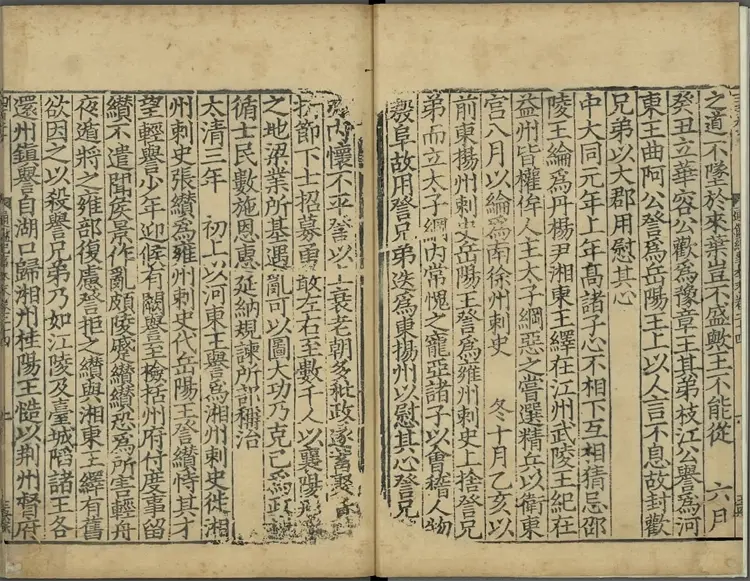 之道不墜於來葉豈不盛歟主不能從　六月
癸丑立華容公歡爲豫章王其弟枝江公譽爲河
東王曲阿公詧爲岳陽王上以人言不息故封歡
兄弟以大郡用慰其心
中大同元年上年髙諸子心不相下互相猜忌邵
陵王綸爲丹楊尹湘東王繹在江州武陵王紀在
益州皆權侔人主太子綱惡之嘗選精兵以衛東
宫八月以綸爲南徐州刺史　冬十月乙亥以
前東揚州刺史岳陽王詧爲雍州刺史上捨詧兄
弟而立太子綱内常愧之寵亞諸子以會稽人物
殷阜故用詧兄弟迭爲東揚州以慰其心詧兄
弟内懷不平詧以上衰老朝多秕政遂蓄聚
折節下士招募勇敢左右至數千人以襄陽形
之地梁業所基遇亂可以圖大功乃克己爲政
循士民數施恩惠延納規諫所部稱治
太清三年　初上以河東王譽爲湘州刺史徙湘
州刺史張纘爲雍州刺史代岳陽王詧纘恃其才
望輕譽少年迎候有闕譽至檢括州府付度事留
纘不遣聞侯景作亂頗陵蹙纘纘恐爲所害輕舟
夜遁將之雍部復慮詧拒之纘與湘東王繹有舊
欲因之以殺譽兄弟乃如江陵及臺城陷諸王各
還州鎮譽自湖口歸湘州桂陽王慥以荆州督府